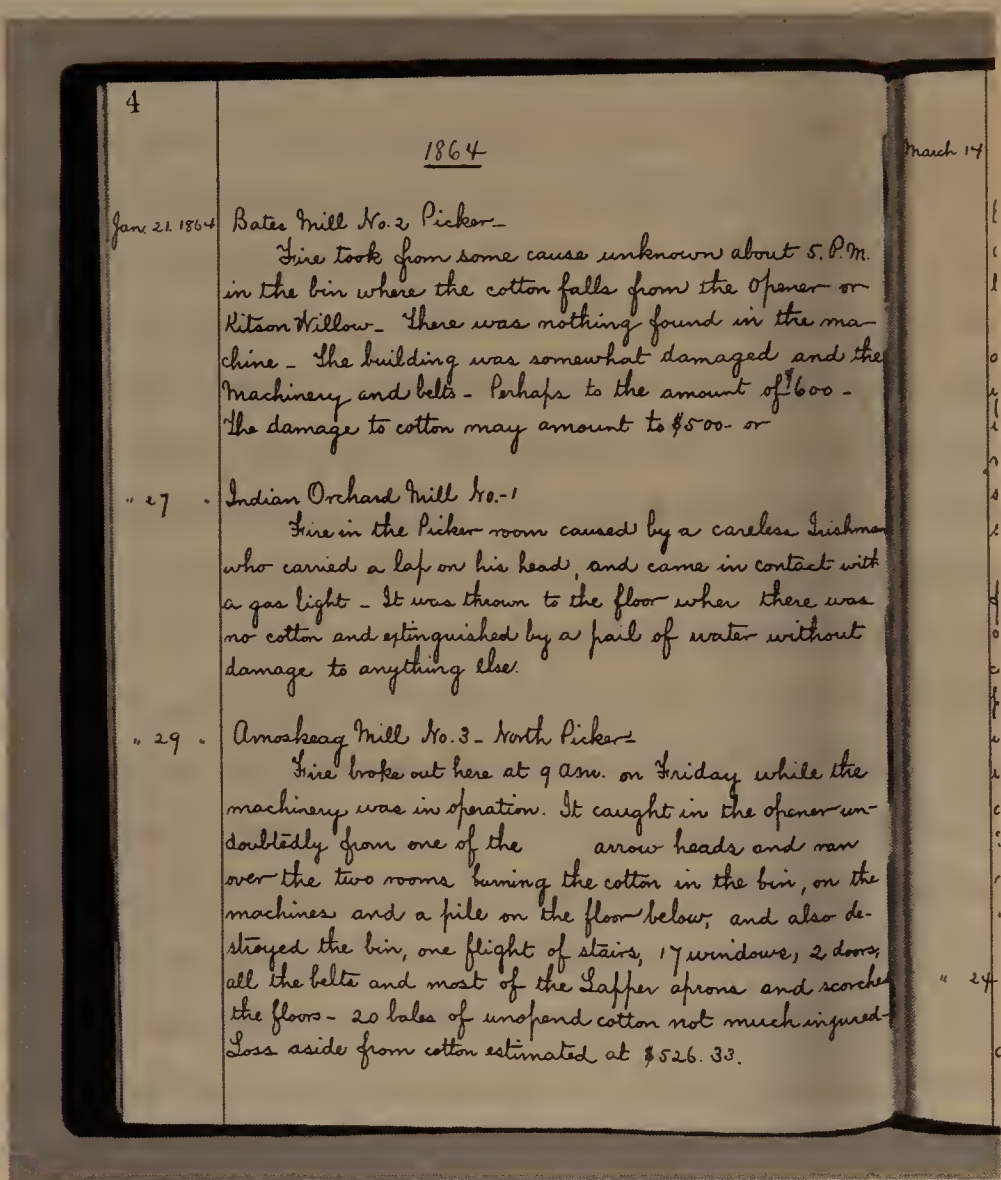 4
1864
Jan. 21. 1864 Bates Mill No. 2 Picker-
Fire took from some cause unknown about 5. P.M.
in the bin where the cotton falls from the Opener or
Kitson Willow- There was nothing found in the ma-
chine - The building was somewhat damaged and the
Machinery and belts - Perhaps to the amount of $600 -
The damage to cotton may amount to $500- or
" 27 " Indian Orchard Mill No.-1
Fire in the Picker room caused by a careless Irishman
who carried a lap on his head, and came in contact with
a gas light - It was thrown to the floor wher there was
no cotton and extinguished by a pail of water without
damage to anything else.
" 29 " Amoskeag Mill No. 3 - North Picker-
Fire broke out here at 9 am. on Friday while the
machinery was in operation. It caught in the opener un-
doubtedly from one of the arrow heads and ran
over the two rooms burning the cotton in the bin, on the
machines and a pile on the floor below, and also de-
stroyed the bin, one flight of stairs, 17 windows, 2 doors,
all the belts and most of the Lapper aprons and scorched
the floors - 20 bales of unopend cotton not much injured-
Loss aside from cotton estimated at $526.33.
March 14
" 24